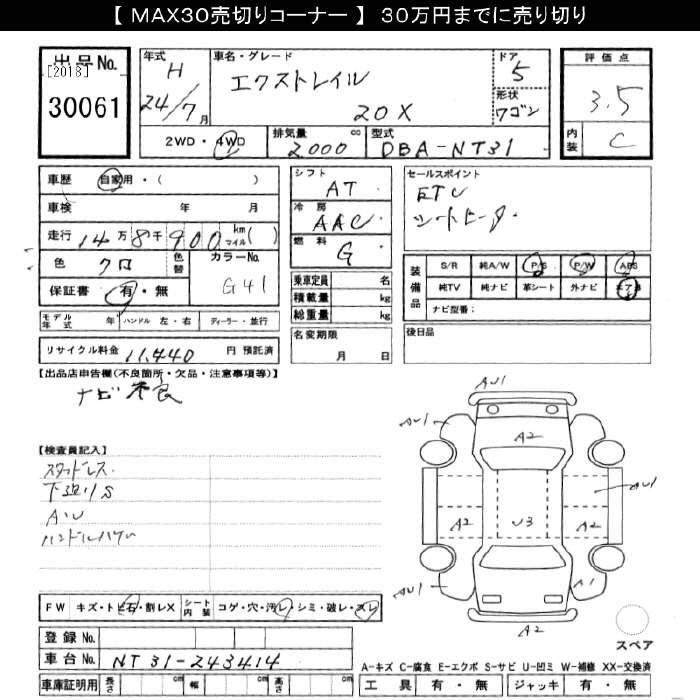 【 MAX30売切りコーナー 】 30万円までに売り切り
出品No.
[2018]
30061
年式 H 24/7月
車名・グレード エクストレイル 20X
ドア 5
形状 ワゴン
評価点 3.5
内装 C
2WD・4WD
排気量 2000 cc
型式 DBA-NT31
車歴 自家用・( )
車検 年 月
走行 14万8千900 km マイル( )
色 クロ 色替 カラーNo. G41
保証書 有・無
モデル年式 年 ハンドル 左・右 ディーラー・並行
リサイクル料金 11,440 円 預託済
シフト AT
冷房 AAC
燃料 G
乗車定員 名
積載量 kg
総重量 kg
名変期限 月 日
セールスポイント
ETC
シートヒータ
装備品
S/R 純A/W P/S P/W ABS
純TV 純ナビ 革シート 外ナビ エアB
ナビ型番:
後日品
【出品店申告欄(不良箇所・欠品・注意事項等)】
ナビ不良
【検査員記入】
スタッドレス
下廻りS
A・U
FW キズ・トビ石・割レX シート内装 コゲ・穴・汚レ・シミ・破レ・スレ
登録No.
車台No. NT31-243414
車庫証明用 長さ cm 幅 cm 高さ cm
AU1
AU1
A2
AU1
A2
U3
A2
AU1
A1
A2
スペア
A-キズ C-腐食 E-エクボ S-サビ U-凹ミ W-補修 XX-交換済
工具 有・無 ジャッキ 有・無